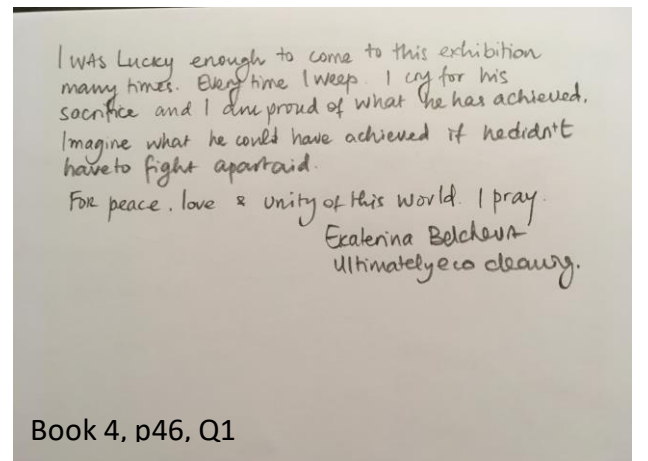 I WAS Lucky enough to come to this exhibition
many times. Every time I weep. I cry for his
sacrifice and I am proud of what he has achieved.
Imagine what he could have achieved if he didn't
have to fight apartaid.
FOR peace, love & unity of this world. I pray.
Ekaterina
Ultimately eco
Book 4, p46, Q1